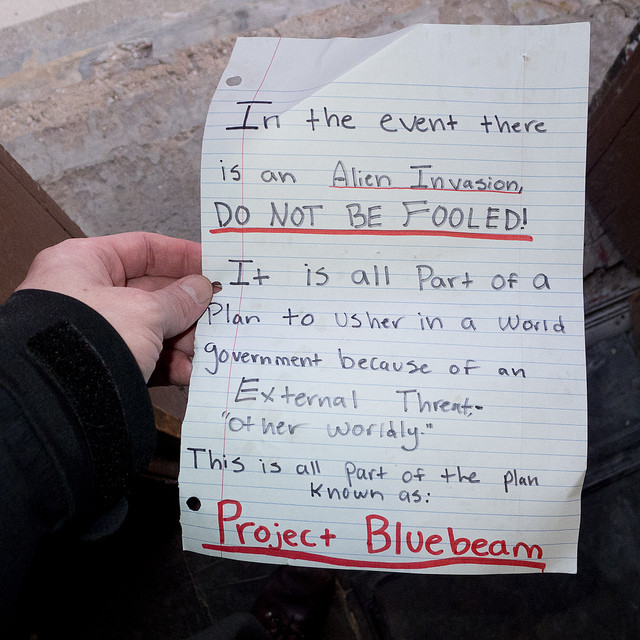 In the event there
is an Alien Invasion,
DO NOT BE FOOLED!
It is all Part of a
Plan to usher in a World
government because of an
External Threat,-
"other worldly."
This is all part of the plan
Known as:
Project Bluebeam